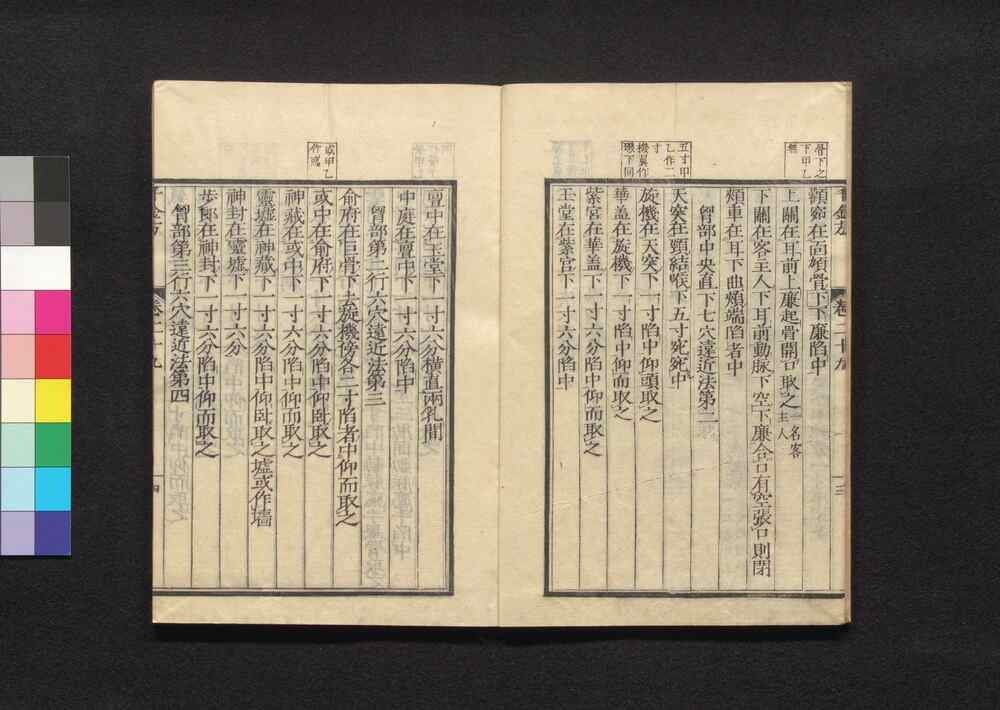 骨下之
下甲乙
無
五寸甲
乙作二
寸
機翼作
璣下同
千金方
卷二十九
三
顴窌在面頄骨下下廉陷中
上關在耳前上廉起骨開口取之一名客主人
下關在客主人下耳前動脉下空下廉合口有空張口則閉
頰車在耳下曲頰端陷者中
胷部中央直下七穴遠近法第二
天突在頸結喉下五寸宛宛中
旋機在天突下一寸陷中仰頭取之
華蓋在旋機下一寸陷中仰而取之
紫宮在華蓋下一寸六分陷中仰而取之
玉堂在紫宮下一寸六分陷中
或甲乙
作彧
亶中在玉堂下一寸六分橫直兩乳間
中庭在亶中下一寸六分陷中
胷部第二行六穴遠近法第三
俞府在巨骨下去旋機傍各二寸陷者中仰而取之
或中在俞府下一寸六分陷中仰臥取之
神藏在或中下一寸六分陷中仰而取之
靈墟在神藏下一寸六分陷中仰臥取之墟或作墻
神封在靈墟下一寸六分
步郎在神封下一寸六分陷中仰而取之
胷部第三行六穴遠近法第四
千金方
卷二十九
四